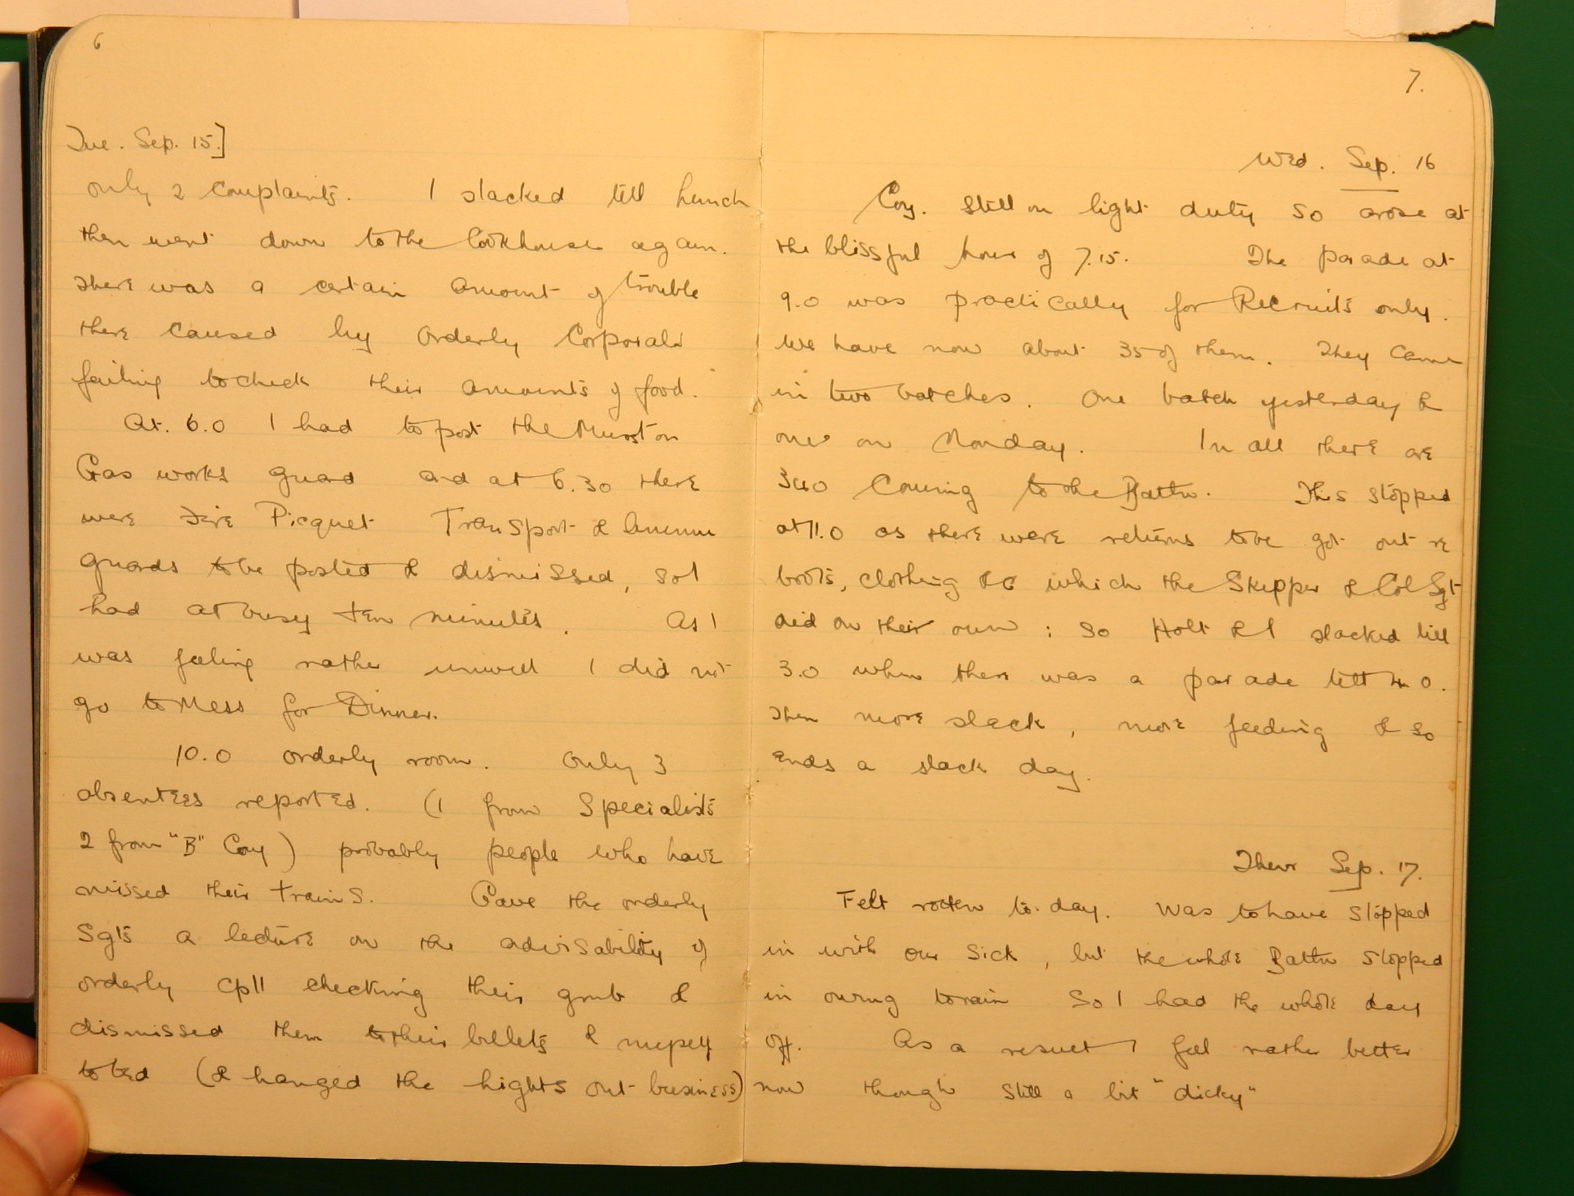 6
Tue. Sep. 15.]
only 2 complaints. I slacked till lunch
then went down to the Cookhouse again.
There was a certain amount of trouble
there caused by orderly Corporals
failing to check their amounts of food.
At. 6.0 I had to post the Murston
Gas works guard and at 6.30 there
were Fire Picquet Transport &
guards to be posted & dismissed, so I
had a busy ten minutes. As I
was feeling rather unwell I did not
go to Mess for Dinner.
10.0 orderly room. Only 3
absentees reported. (1 from Specialists
2 from "B" Coy) probably people who have
missed their trains. Gave the orderly
Sgts a lecture on the advisability of
orderly cpll checking their grub &
dismissed them to their billets & myself
to bed (& hanged the lights out business)
7.
Wed. Sep. 16
Coy. still on light duty so arose at
the blissful hour of 7.15. The parade at
9.0 was practically for Recruits only.
We have now about 35 of them. They came
in two batches. One batch yesterday &
one on Monday. In all there are
340 coming to the Battn. This stopped
at 11.0 as there were returns to be got out re
boots, clothing &c which the Skipper & Col Sgt
did on their own : so Holt & I slacked till
3.0 when there was a parade till 4.0.
Then more slack, more feeding & so
ends a slack day.
Thur Sep. 17.
Felt rotten to-day. Was to have stopped
in with our sick, but the whole Battn stopped
in owing to rain so I had the whole day
off. As a result I feel rather better
now though still a bit "dicky"